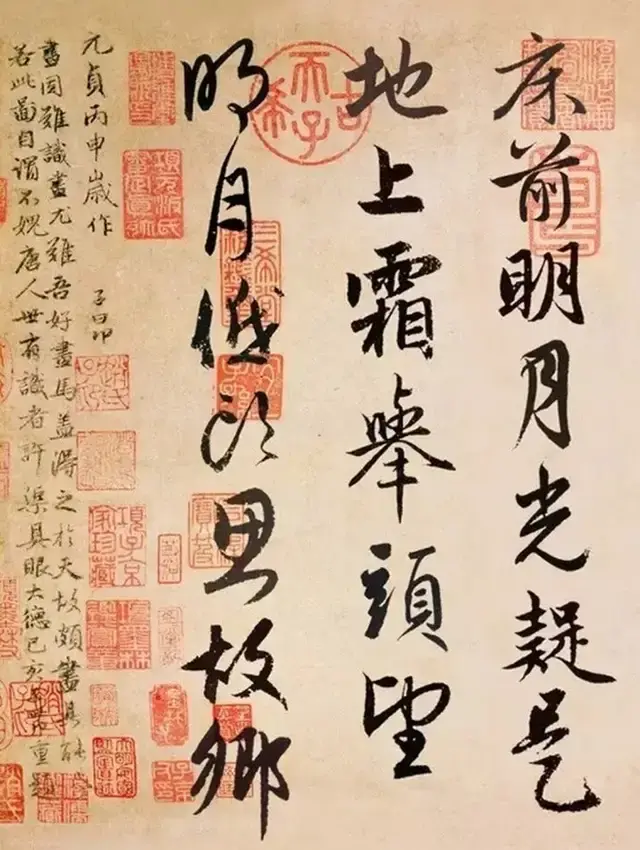 床前明月光疑是
地上霜舉頭望
明月低頭思故鄉
元貞丙申歲作 子昂
畫固難識畫尤難吾好畫馬蓋得之於天故頗盡其能
若此圖自謂不愧唐人世有識者許渠具眼大德己亥 重題
古希天子
項子京家珍藏